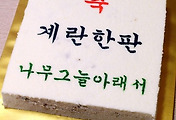 계란한판
나무그늘아래서